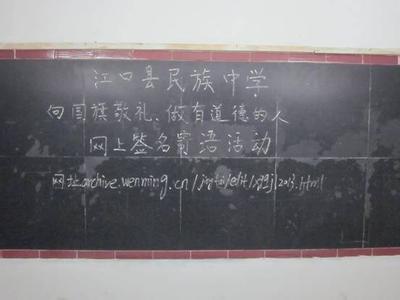 江口县民族中学
向国旗敬礼、做有道德的人
网上签名寄语活动
网址archive.wenming.cn/